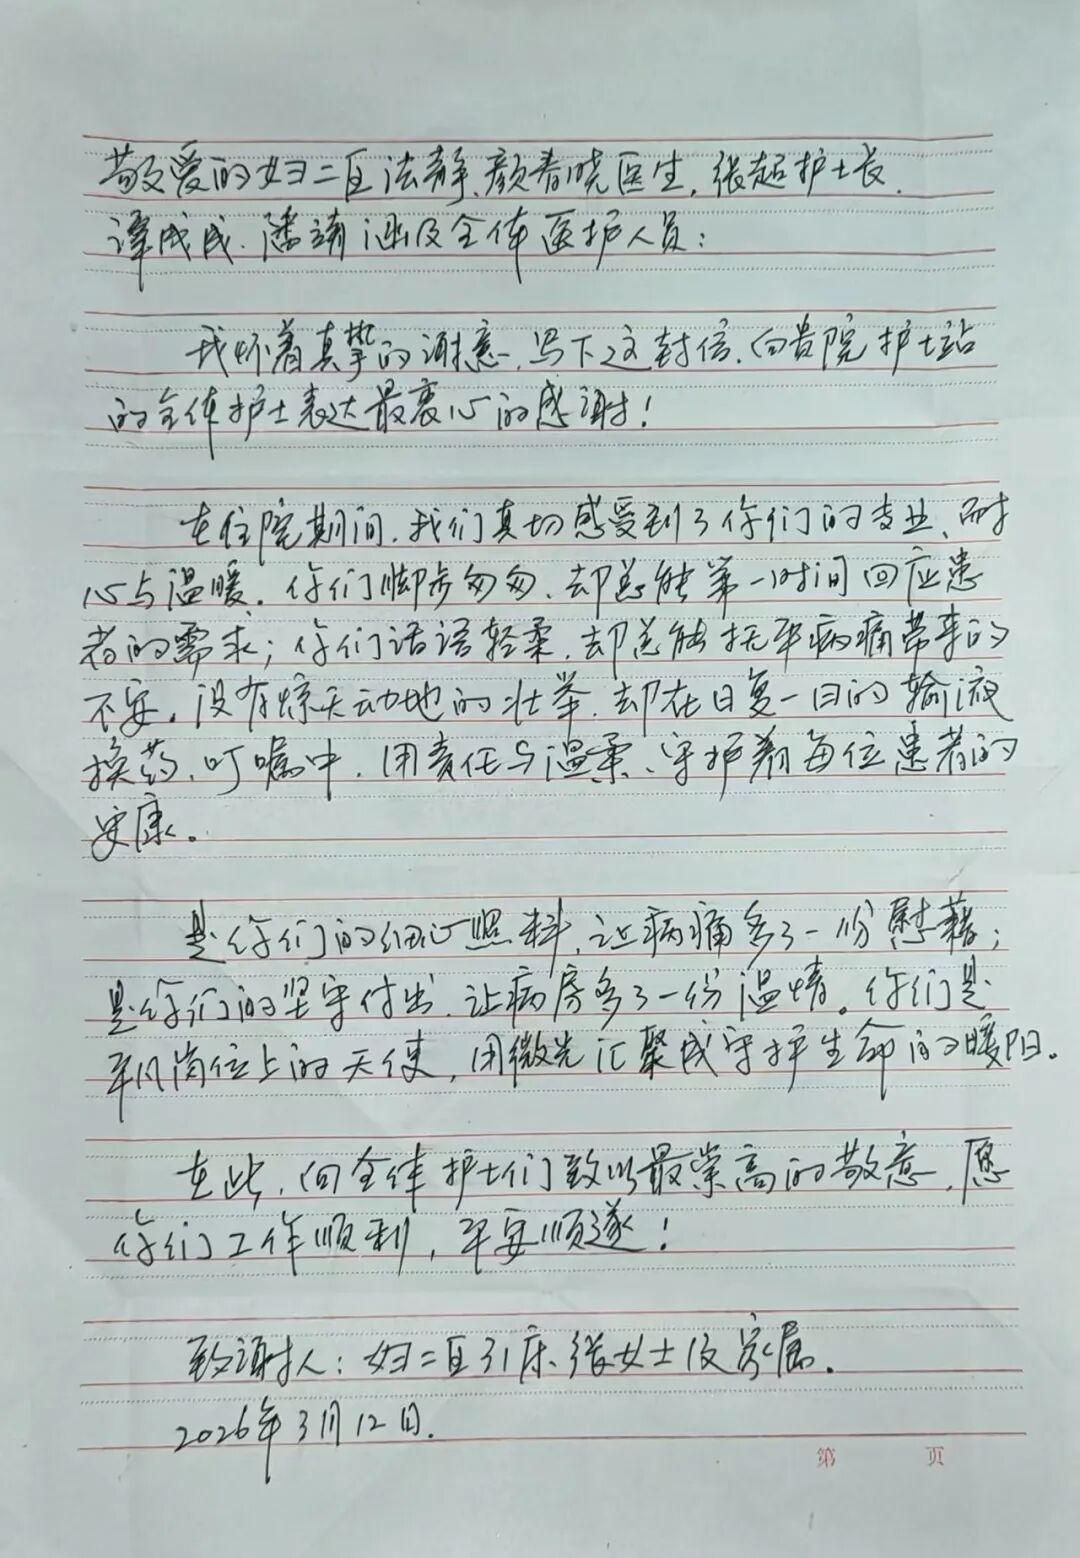 敬爱的妇二区法静、颜春晓医生，张超护士长、
谭成成、潘靖涵及全体医护人员：
我怀着真挚的谢意，写下这封信，向贵院护士站
的全体护士表达最衷心的感谢！
在住院期间，我们真切感受到了你们的专业、耐
心与温暖。你们脚步匆匆，却总能第一时间回应患
者的需求；你们话语轻柔，却总能抚平病痛带来的
不安。没有惊天动地的壮举，却在日复一日的输液
换药、叮嘱中，用责任与温柔、守护着每位患者的
安康。
是你们的细心照料，让病痛多了一份慰藉；
是你们的坚守付出，让病房多了一份温情。你们是
平凡岗位上的天使，用微光汇聚成守护生命的暖阳。
在此，向全体护士们致以最崇高的敬意，愿
你们工作顺利，平安顺遂！
致谢人：妇二区31床、张女士及家属。
2026年3月12日.
第 页